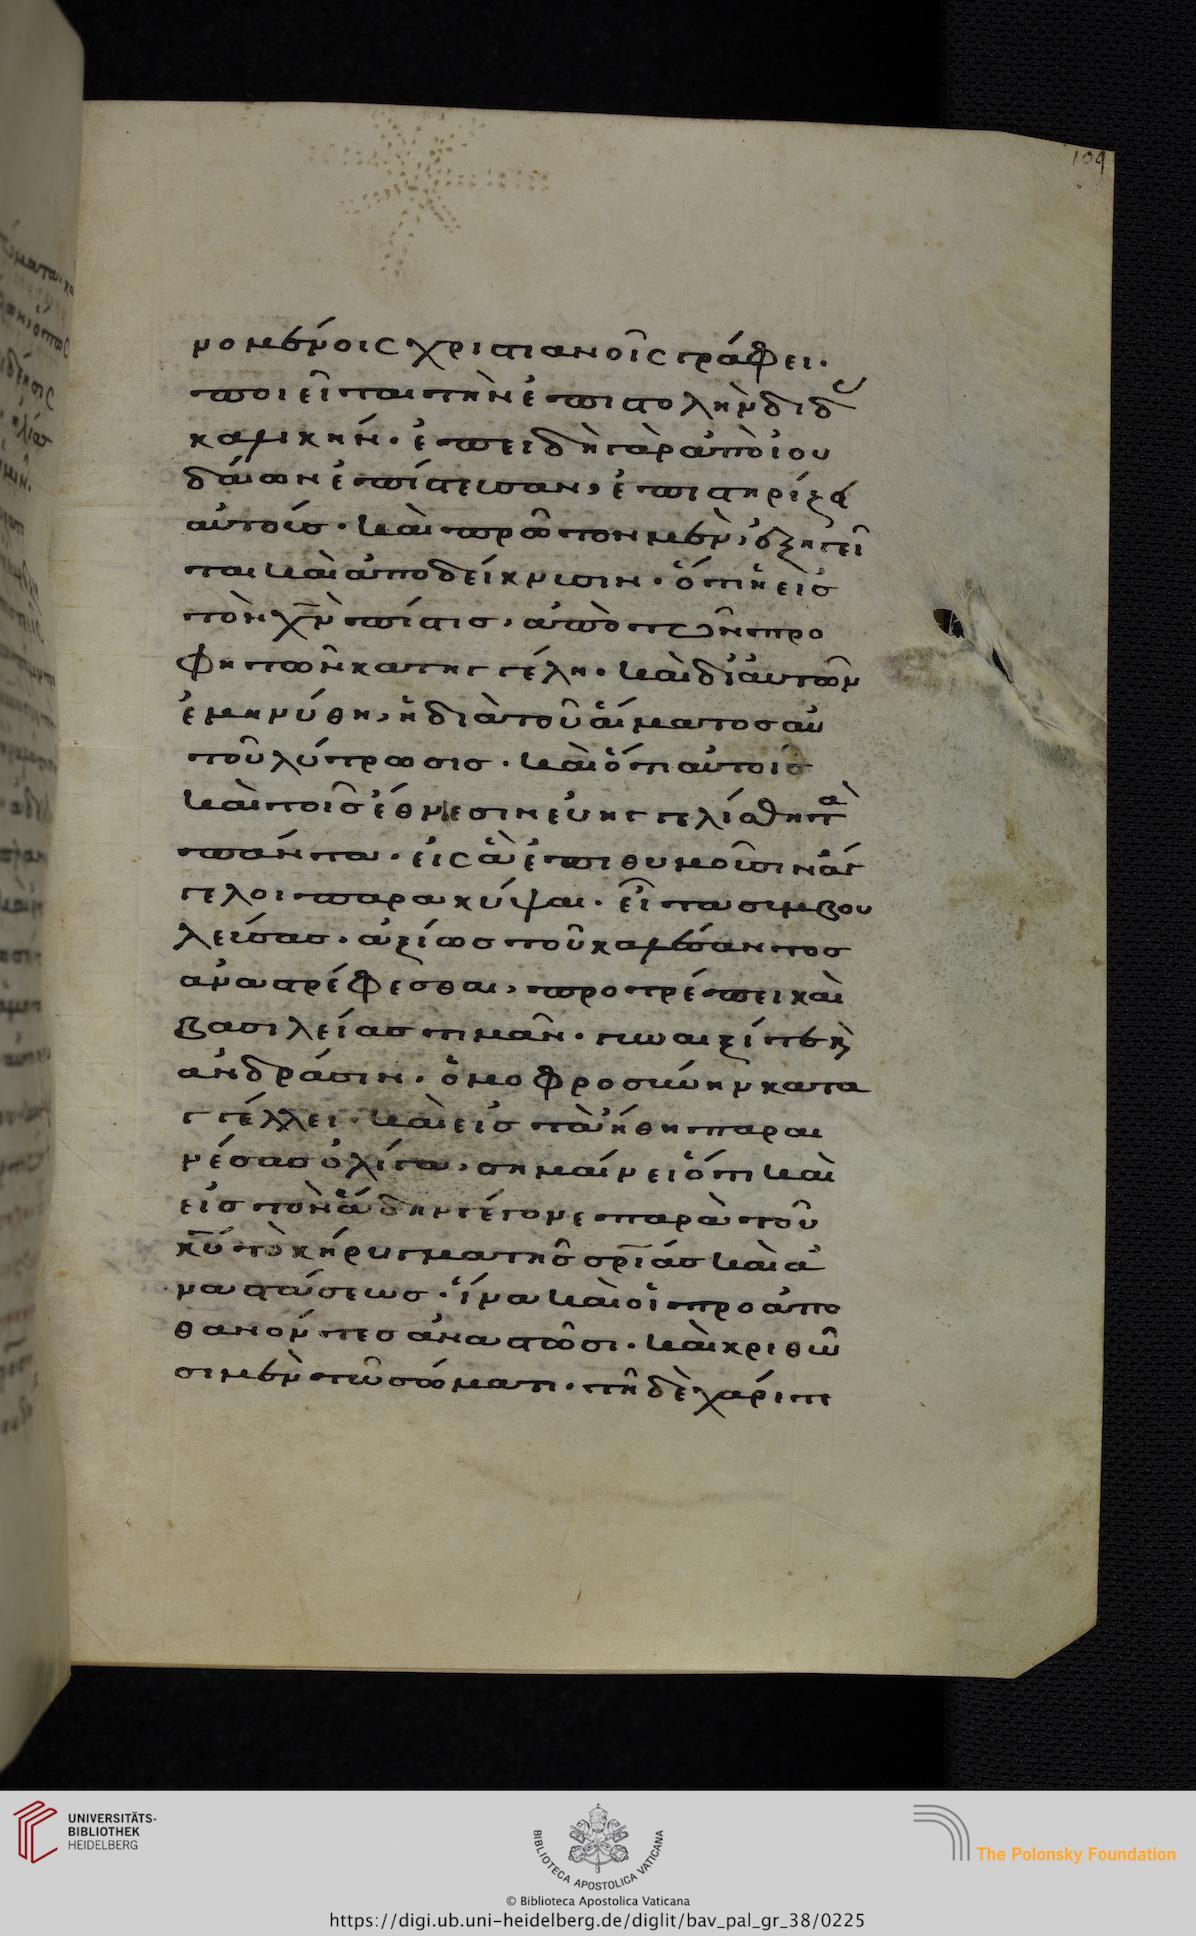 109
νομένοις χριστιανοῖς γράφει·
ποιεῖται τὴν ἐπιστολὴν διδ
καλικήν· ἐπειδὴ γὰρ ἀπὸ ἰου
δαίων ἐπίστευσαν, ἐπιστηρίζει
αὐτούς· καὶ πρῶτον μὲν, ἐξηγεῖ
ται καὶ ἀποδείκνυσιν· ὅτι ἡ εἰς
τὸν χν πίστις, ἀπὸ τῶν προ
φητῶν κατηγγέλη· καὶ δι' αὐτῶν
ἐμηνύθη, ἡ διὰ τοῦ αἵματος αὐ
τοῦ λύτρωσις· καὶ ὅτι αὐτοῖς
καὶ τοῖς ἔθνεσιν εὐηγγελίσθη τὰ
πάντα· εἰς ἃ ἐπιθυμοῦσιν ἄγ
γελοι παρακύψαι· εἶτα συμβου
λεύσας· ἀξίως τοῦ καλέσαντος
ἀναστρέφεσθαι, προτρέπει καὶ
βασιλείας τιμᾶν· γυναιξί τε κ
ἀνδράσιν· ὁμοφροσύνην κατα
γγέλλει· καὶ εἰς τὰ ἤθη παραι
νέσας ὀλίγα, σημαίνει ὅτι καὶ
εἰς τὸν ἅδην γέγονε παρὰ τοῦ
κυ τὸ κήρυγμα τῆς σρίας καὶ ἀ
ναστάσεως· ἵνα καὶ οἱ προαπο
θανόντες ἀναστῶσι· καὶ κριθῶ
σι μὲν τῶ σώματι· τῆ δὲ χάριτι
UNIVERSITÄTS-
BIBLIOTHEK
HEIDELBERG
BIBLIOTECA APOSTOLICA VATICANA
The Polonsky Foundation
© Biblioteca Apostolica Vaticana
https://digi.ub.uni-heidelberg.de/diglit/bav_pal_gr_38/0225